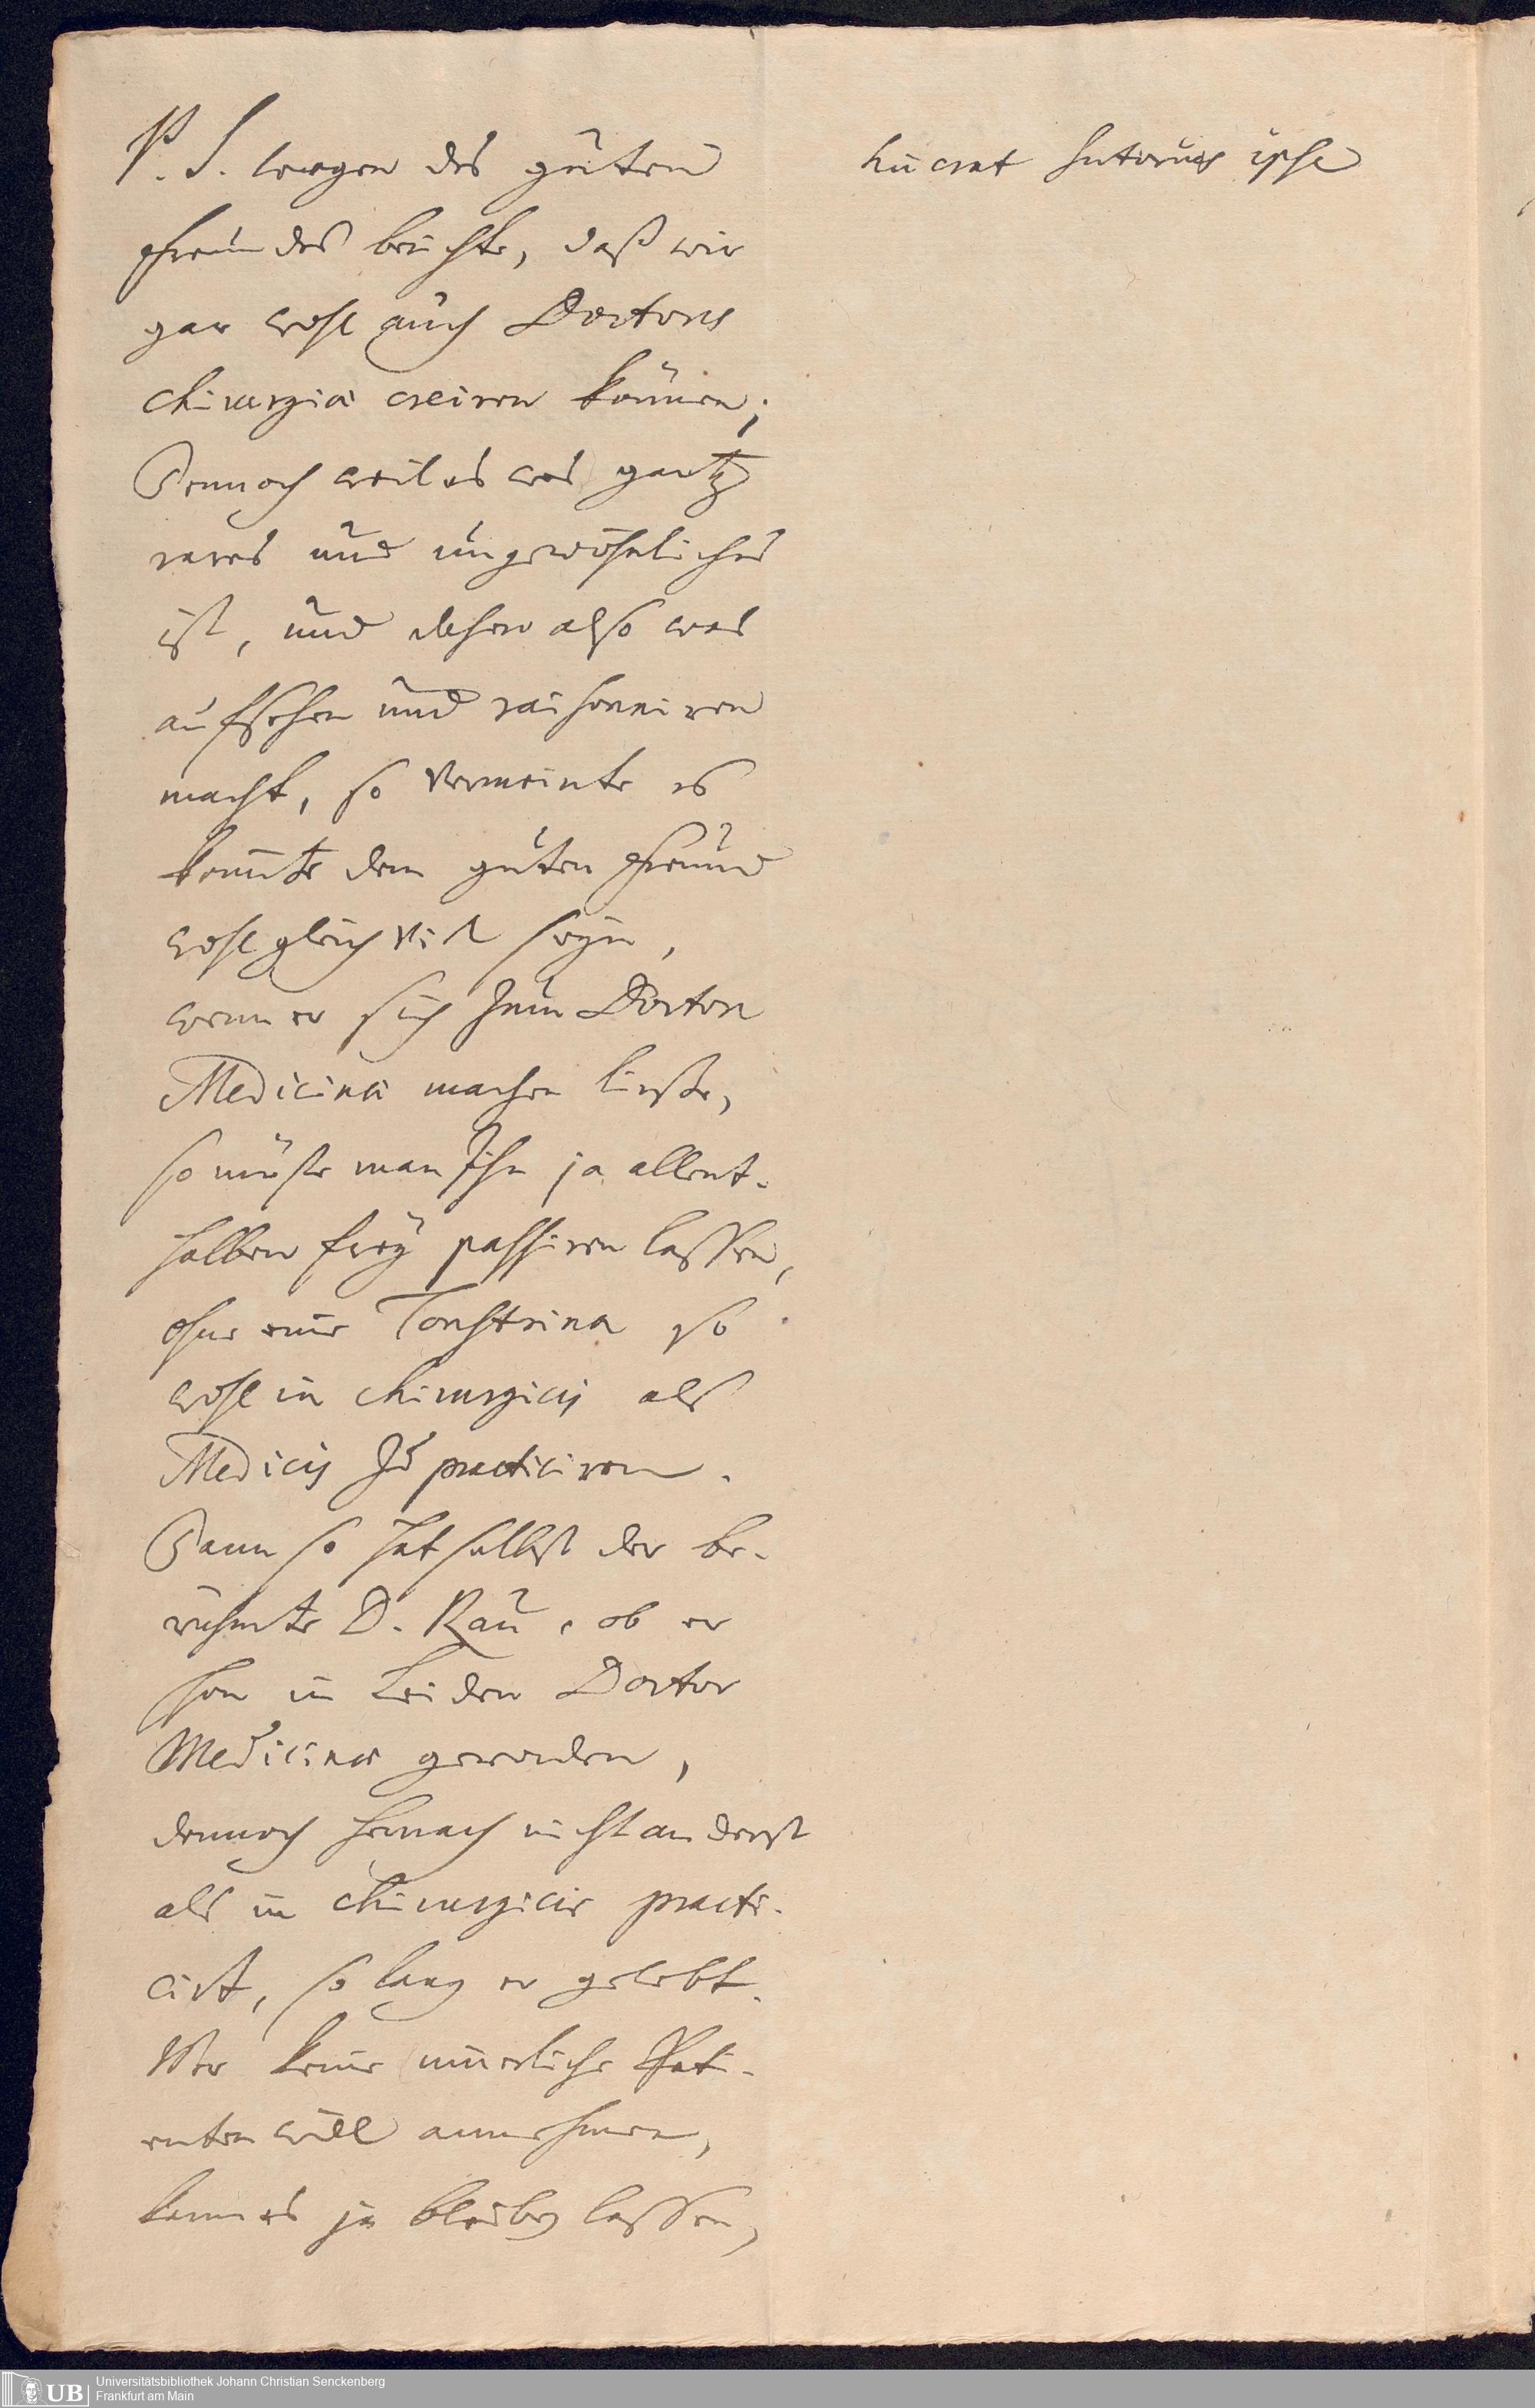 P. S. wegen des guten
Freundes berichte, daß wir
gar wohl auch Doctores
chirurgiæ creiren können;
Dennoch weil es was gantz
rares und ungewöhnliches
ist, und daher also was
aufsehen und raisonniren
macht, so vermeinte es
könnte dem guten Freund
wohl gleich viel seyn,
wenn er sich zum Doctore
Medicinæ machen ließe,
so müste man Ihn ja allent-
halben frey passiren lassen,
ohne eine Tonstrina so
wohl in chirurgicis als
Medicis zu practiciren.
Dann so hat selbst der be-
rühmte D. Rau, ob er
schon in Leiden Doctor
Medicinæ geworden,
dennoch hernach nicht anderst
als in chirurgicis practi-
cirt, so lang er gelebt.
Wer keine innerliche Pati-
enten will annehmen,
kann es ja bleiben lassen,
ipse
Universitätsbibliothek Johann Christian Senckenberg
Frankfurt am Main
UB